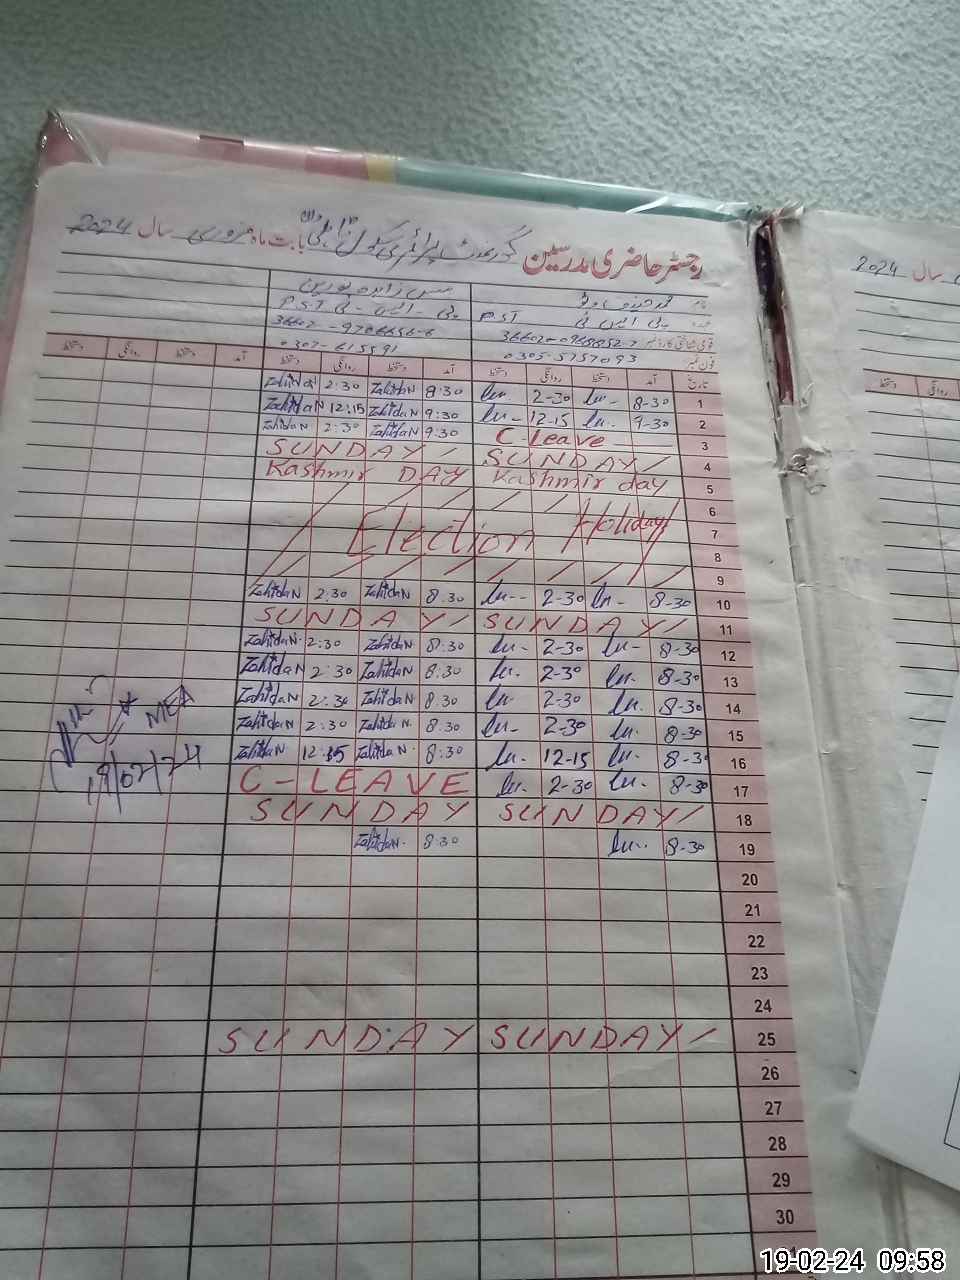 رجسٹر حاضری مدرسین گورنمنٹ پرائمری سکول بابت ماہ فروری سال 2024
سال 2024
نام
مس زاہدہ نورین
عہدہ پی ایس ٹی PST
پی - ایس - ٹی PST
قومی شناختی کارڈ نمبر
فون نمبر 0305-5757093
تاریخ آمد دستخط روانگی دستخط آمد دستخط روانگی دستخط آمد دستخط روانگی دستخط
دستخط روانگی
1 8-30 2-30 8:30 ZahidaN 2:30 ZahidaN
2 9-30 12-15 9:30 ZahidaN 12:15 ZahidaN
3 C-Leave 9:30 ZahidaN 2:30 ZahidaN
4 SUNDAY SUNDAY
5 Kashmir day Kashmir DAY
6
7 Election Holiday
8
9
10 8-30 2-30 8:30 ZahidaN 2:30 ZahidaN
11 SUNDAY SUNDAY
12 8-30 2-30 8:30 ZahidaN 2:30 ZahidaN
13 8-30 2-30 8:30 ZahidaN 2:30 ZahidaN
14 8-30 2-30 8:30 ZahidaN 2:30 ZahidaN
15 8-30 2-30 8:30 ZahidaN 2:30 ZahidaN
16 8-30 12-15 8:30 ZahidaN 12:15 ZahidaN
17 8-30 2-30 C-LEAVE
18 SUNDAY SUNDAY
19 8-30 8:30 ZahidaN
20
21
22
23
24
25 SUNDAY SUNDAY
26
27
28
29
30
MEA
19/02/24
19-02-24 09:58